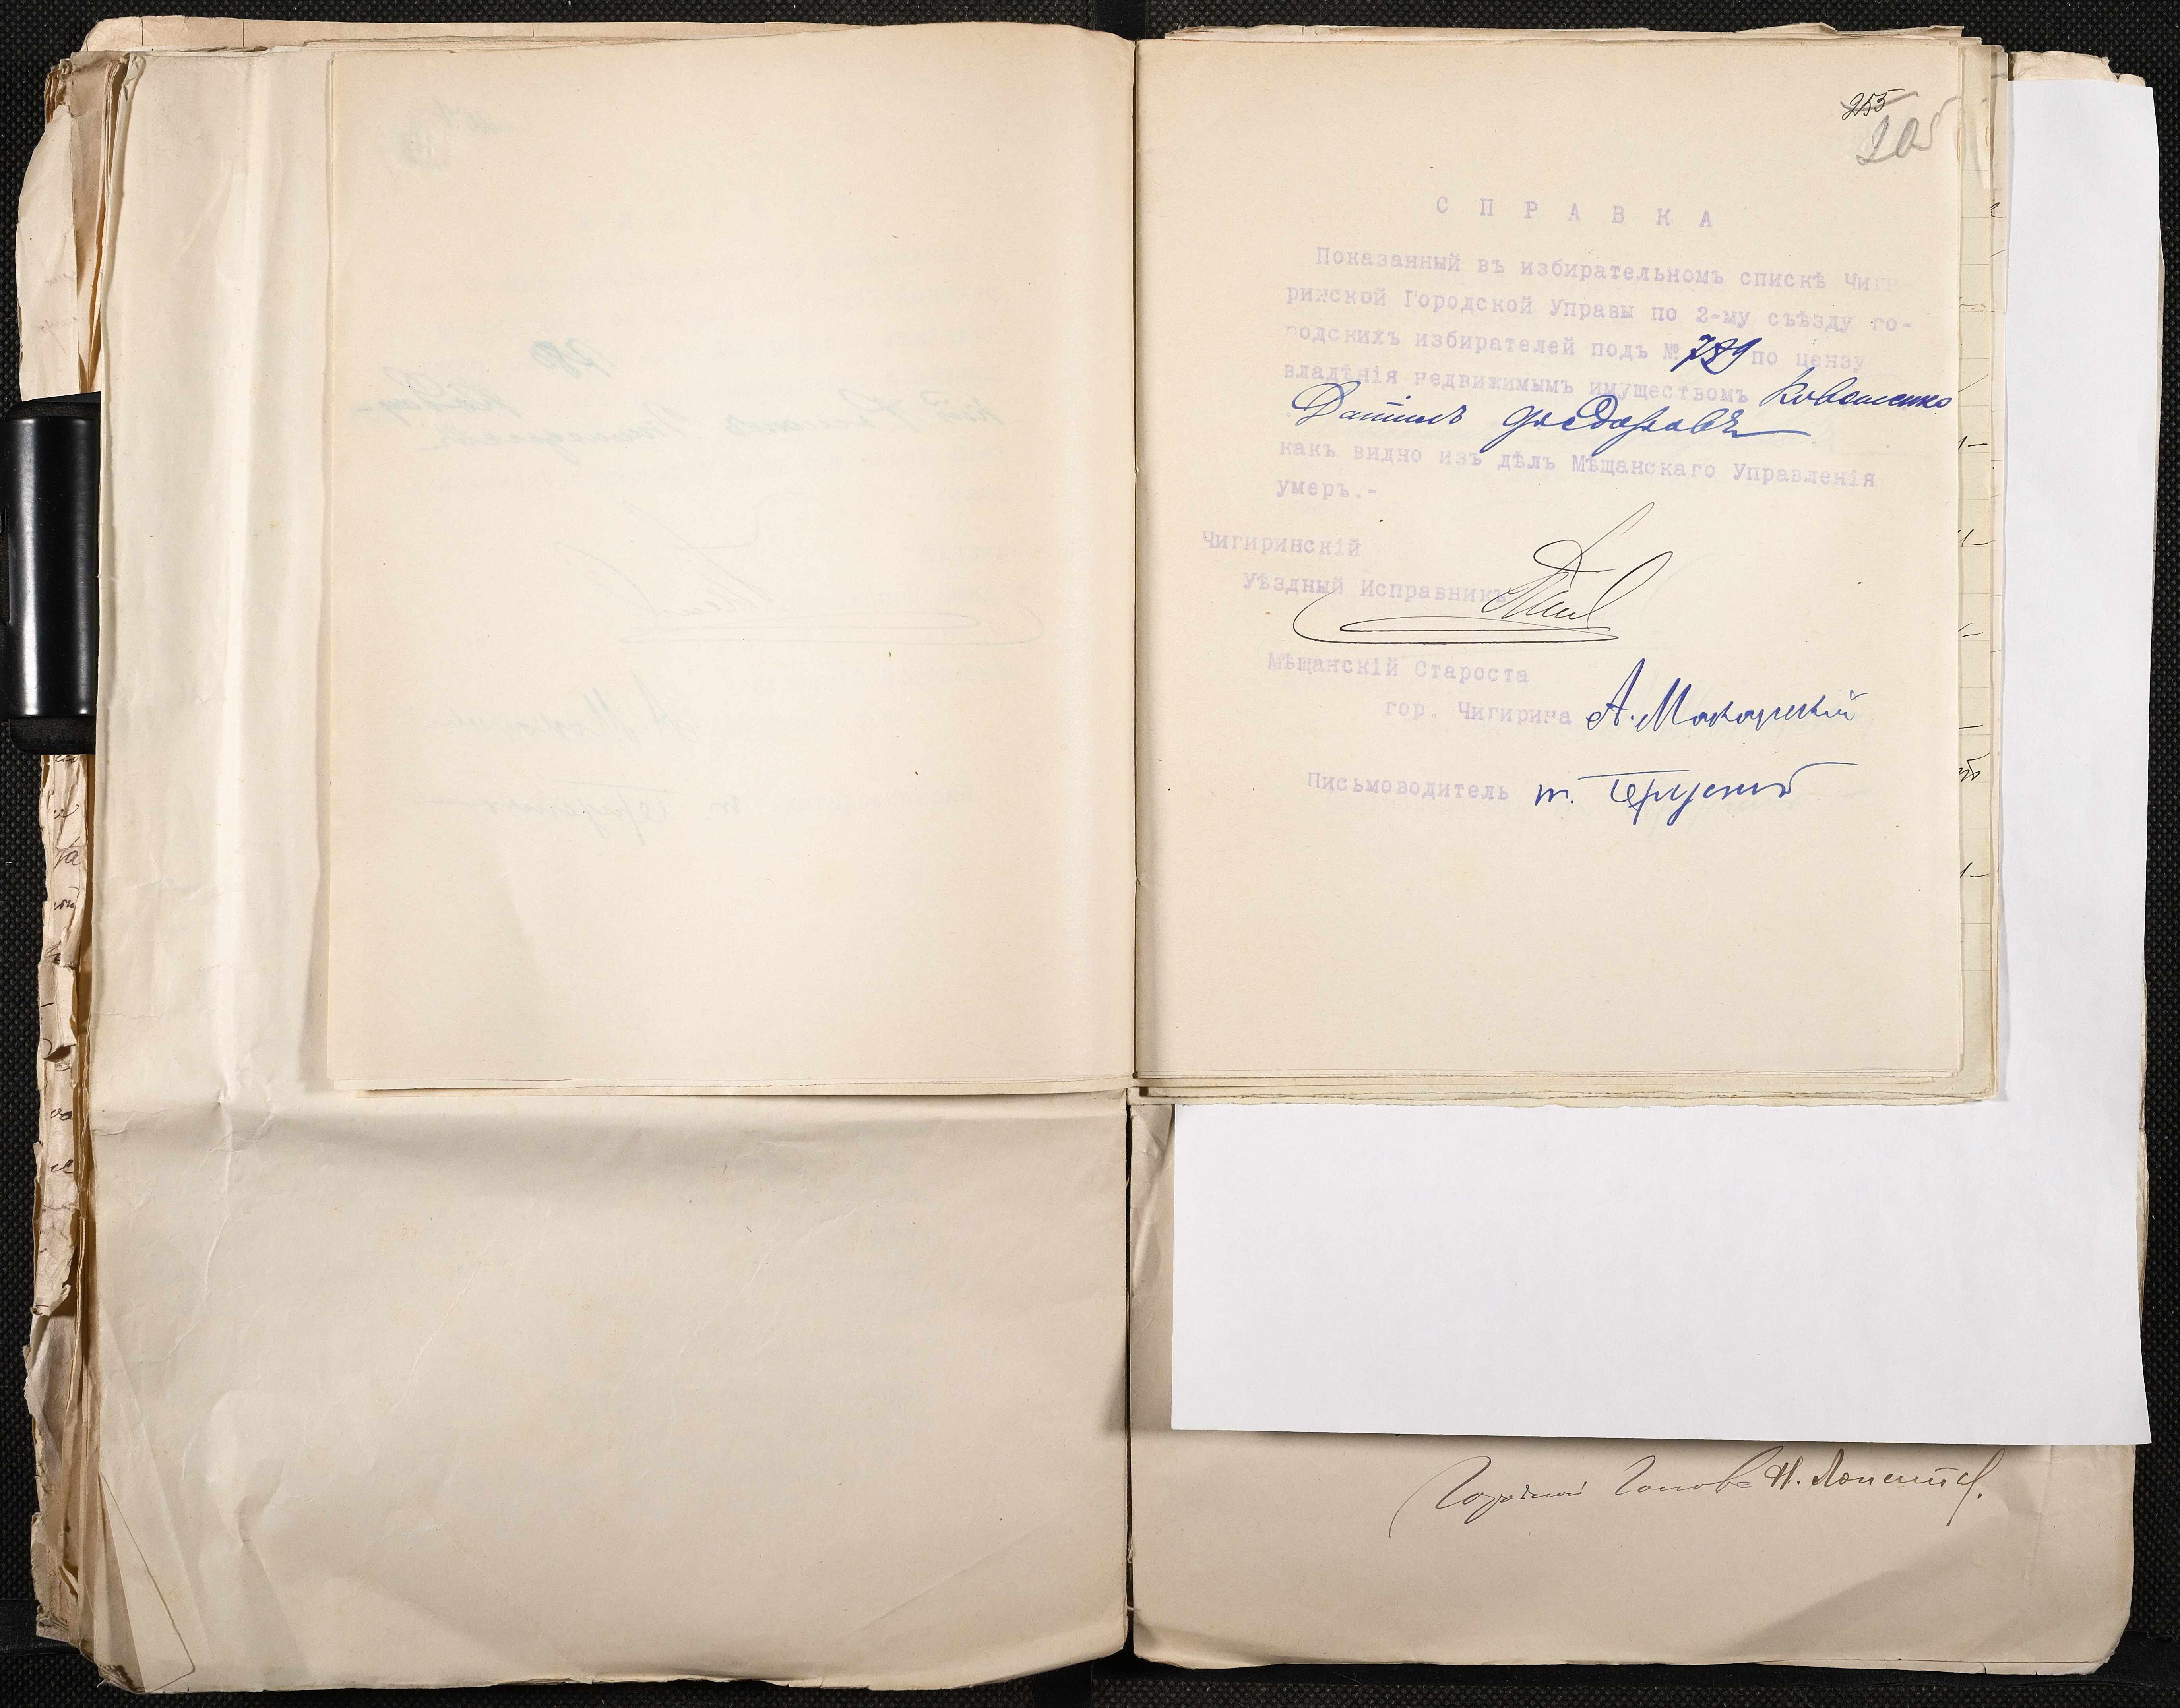 255
С П Р А В К А
Показанный въ избирательномъ спискѣ Чиги
ринской Городской Управы по 2-му съѣзду го-
родскихъ избирателей подъ № 789 по цензу
владѣнія недвижимымъ имуществомъ
Даніилъ Федоровъ
какъ видно изъ дѣлъ Мѣщанскаго Управленія
умеръ.-
Чигиринскій
Уѣздный Исправникъ
Мѣщанскій Староста
гор. Чигирина А. Макарскій
Письмоводитель
Городской Голова Н.